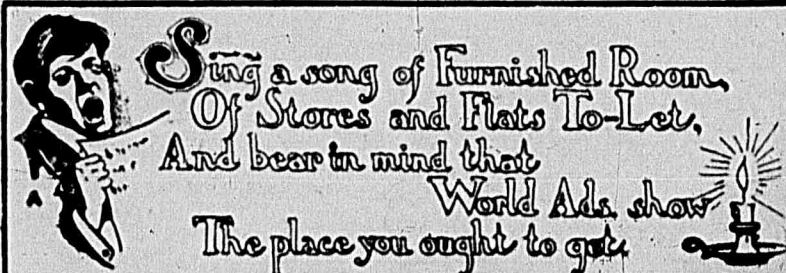 Sing a song of Furnished Room,
Of Stores and Flats To-Let,
And bear in mind that
World Ads. show
The place you ought to get.